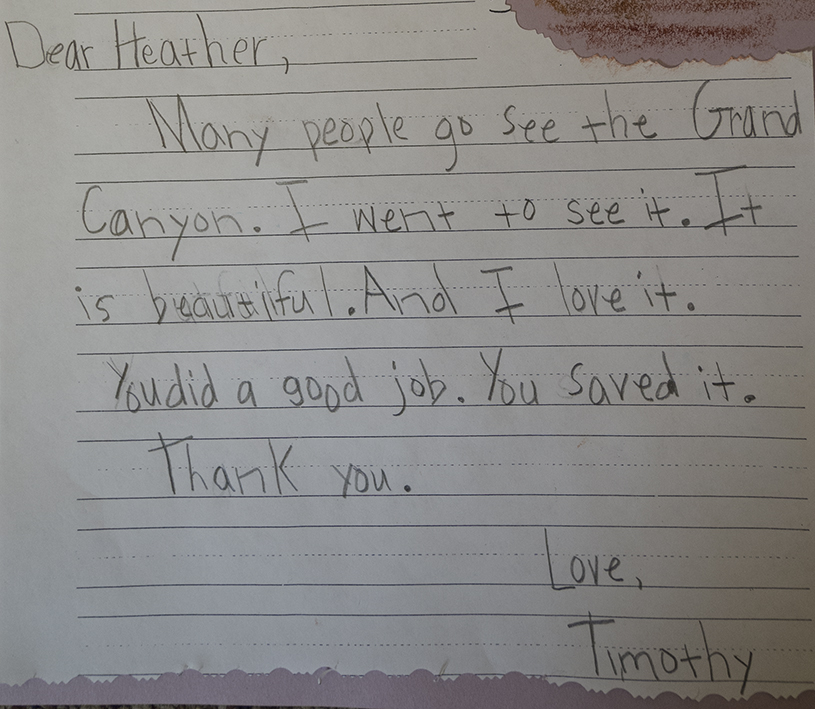 Dear Heather,
Many people go see the Grand
Canyon. I went to see it. It
is beautilful. And I love it.
You did a good job. You saved it.
Thank you.
Love,
Timothy